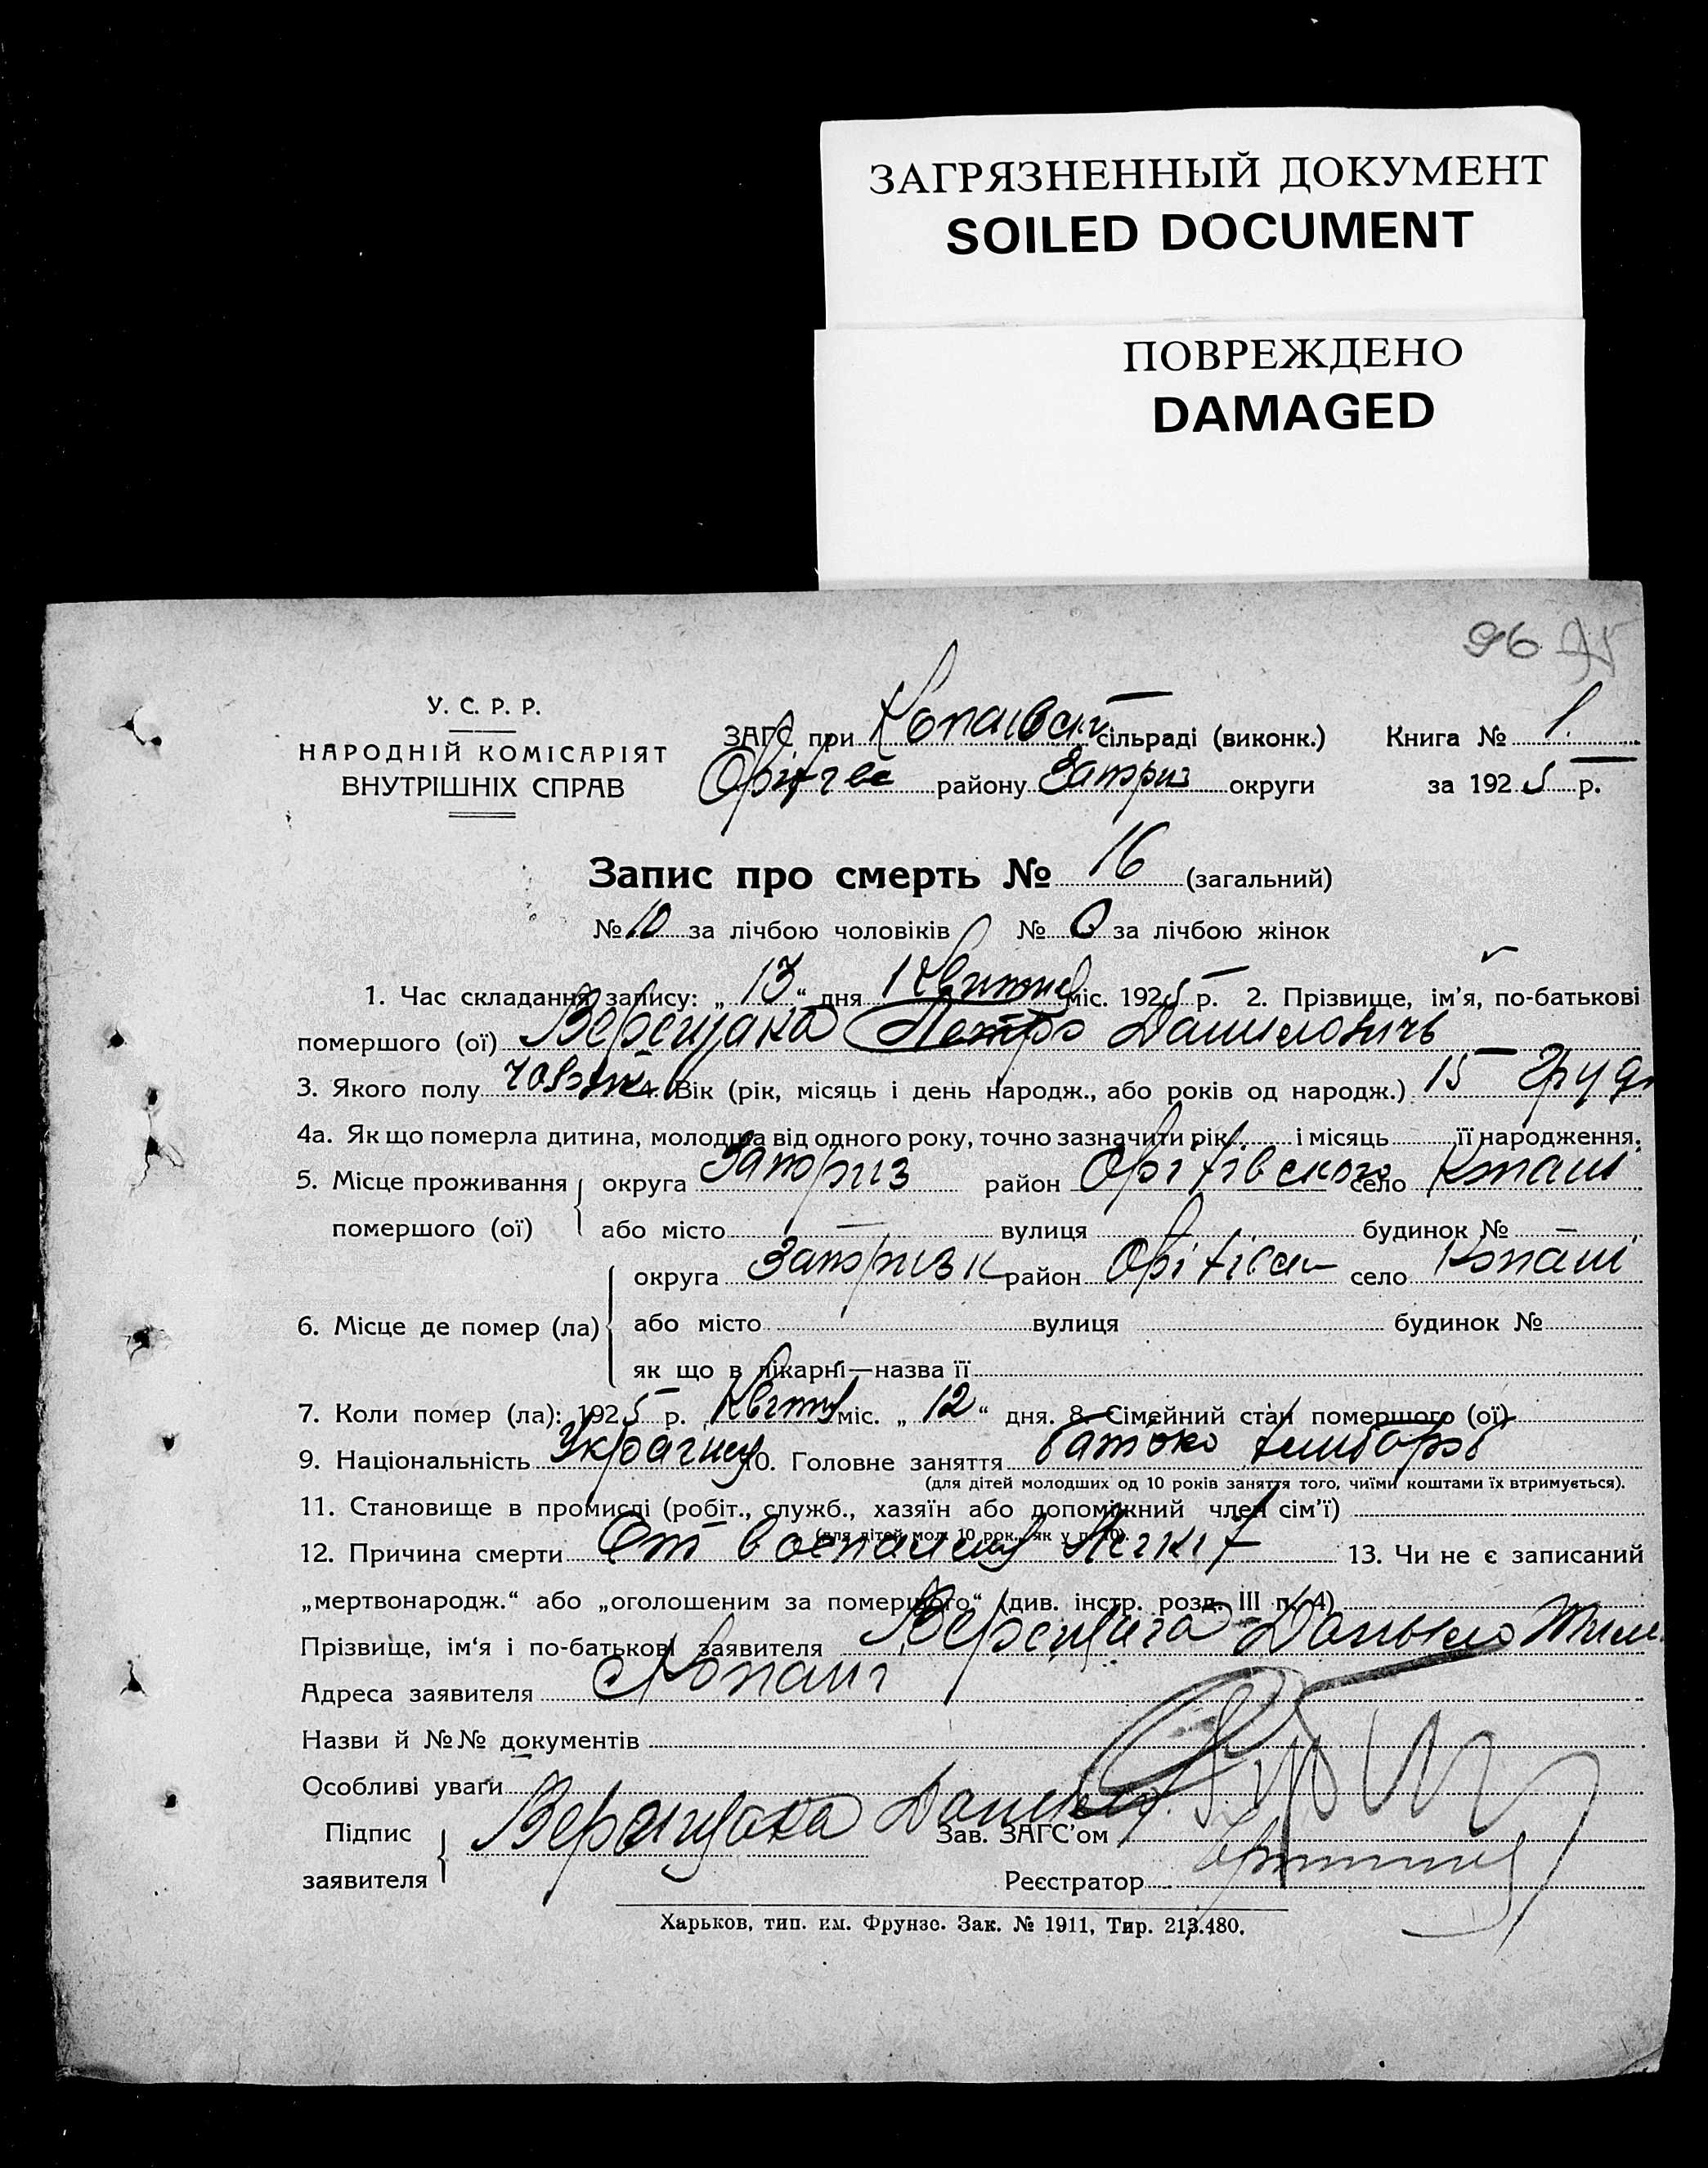 ЗАГРЯЗНЕННЫЙ ДОКУМЕНТ
SOILED DOCUMENT
ПОВРЕЖДЕНО
DAMAGED
96
У. С. Р. Р.
НАРОДНІЙ КОМІСАРІЯТ
ВНУТРІШНІХ СПРАВ
ЗАГС при сільраді (виконк.) Книга № 1.
району Запориз округи за 1925 р.
Запис про смерть № 16 (загальний)
№ 10 за лічбою чоловіків № 6 за лічбою жінок
1. Час складання запису: „ 13 “ дня міс. 1925 р. 2. Прізвище, ім'я, по-батькові
помершого (ої) Верещака Петро Данилович
3. Якого полу 4. Вік (рік, місяць і день народж., або років од народж.) 15 Груд
4а. Як що померла дитина, молодша від одного року, точно зазначити рік і місяць її народження.
5. Місце проживання помершого (ої) округа Запориз район село Копані
або місто — вулиця будинок № —
6. Місце де помер (ла) округа район село Копані
або місто вулиця будинок №
як що в лікарні—назва її
7. Коли помер (ла): 1925 р. міс. „ 12 “ дня. 8. Сімейний стан помершого (ої)
9. Національність 10. Головне заняття батько хлибороб
(для дітей молодших од 10 років заняття того, чиїми коштами їх втримується).
11. Становище в промислі (робіт., служб., хазяїн або допоміжний член сім'ї)
(для дітей мол. 10 рок., як у п. 10)
12. Причина смерти От воспаления 13. Чи не є записаний
„мертвонародж.“ або „оголошеним за помершого“ (див. інстр. розд. III п. 4)
Прізвище, ім'я і по-батькові заявителя Данило
Адреса заявителя Копані
Назви й №№ документів
Особливі уваги
Підпис заявителя Верещака Данило Зав. ЗАГС'ом
Реєстратор
Харьков, тип. им. Фрунзе. Зак. № 1911, Тир. 213.480.